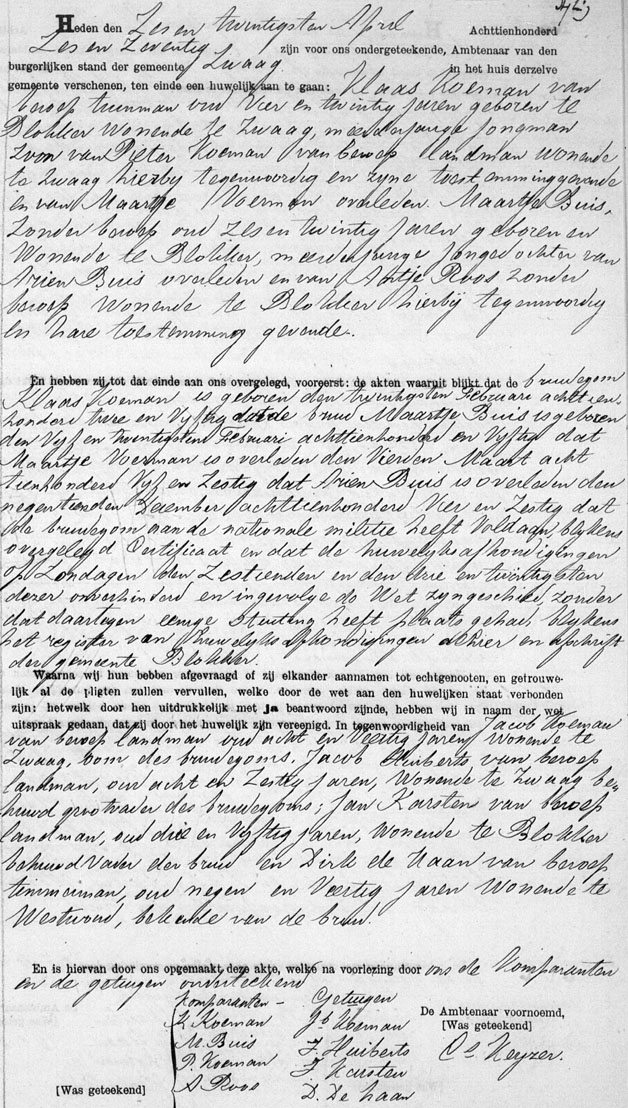 Heden den Zes en twintigsten April Achttienhonderd
Zes en Zeventig zijn voor ons ondergeteekende, Ambtenaar van den
burgerlijken stand der gemeente Zwaag in het huis derzelve
gemeente verschenen, ten einde een huwelijk aan te gaan: Klaas Koeman van
beroep tuinman oud Vier en twintig jaren geboren te
Blokker wonende te Zwaag, meerderjarige jongman
Zoon van Pieter Koeman van beroep landman wonende
te Zwaag hierbij tegenwoordig en zyne toestemminggevende
en van Maartje Voerman overleden. Maartje Buis,
Zonder beroep oud Zes en twintig jaren geboren en
Wonende te Blokker, meerderjarige jongedochter van
Arien Buis overleden en van Antje Roos zonder
beroep Wonende te Blokker hierbij tegenwoordig
en hare toestemming gevende.
En hebben zij tot dat einde aan ons overgelegd, vooreerst: de akten waaruit blijkt dat de bruidegom
Klaas Koeman is geboren den twintigsten Februari achttien
honderd twee en Vijftig dat de bruid Maartje Buis is geboren
den Vijf en twintigsten Februari achttienhonderd en Vijftig dat
Maartje Voerman is overleden den Vierden Maart acht
tienhonderd Vijf en Zestig dat Arien Buis is overleden den
negentienden December achttienhonderd Vier en Zestig dat
de bruidegom aan de nationale militie heeft Voldaan, blykens
overgelegd Certificaat en dat de huwelyksafkondigingen
op Zondagen den Zestienden en den drie en twintigsten
dezer onverhinderd en ingevolge de Wet zyn geschied, zonder
dat daartegen eenige stuiting heeft plaats gehad, blykens
het register van Huwelyks afkondigingen alhier en afschrift
der gemeente Blokker.
Waarna wij hun hebben afgevraagd of zij elkander aannamen tot echtgenooten, en getrouwe-
lijk al de pligten zullen vervullen, welke door de wet aan den huwelijken staat verbonden
zijn: hetwelk door hen uitdrukkelijk met ja beantwoord zijnde, hebben wij in naam der wet
uitspraak gedaan, dat zij door het huwelijk zijn vereenigd. In tegenwoordigheid van Jacob Koeman
van beroep landman oud acht en Veertig jaren, Wonende te
Zwaag, oom des bruidegoms, Jacob Huiberts van beroep
landman, oud acht en Zestig jaren, Wonende te Zwaag be-
huwd grootvader des bruidegoms; Jan Karsten van beroep
landman, oud drie en Vyftig jaren, Wonende te Blokker
behuwd Vader der bruid en Dirk de Haan van beroep
timmerman, oud negen en Veertig jaren Wonende te
Westwoud, bekende van de bruid.
En is hiervan door ons opgemaakt deze akte, welke na voorlezing door ons de Komparanten
en de getuigen onderteekend
Komparanten - Getuigen
De Ambtenaar voornoemd,
K. Koeman Jb Koeman
[Was geteekend]
M. Buis J. Huiberts
Cs Keyzer.
P. Koeman J Karsten
[Was geteekend] A Roos D. De Haan